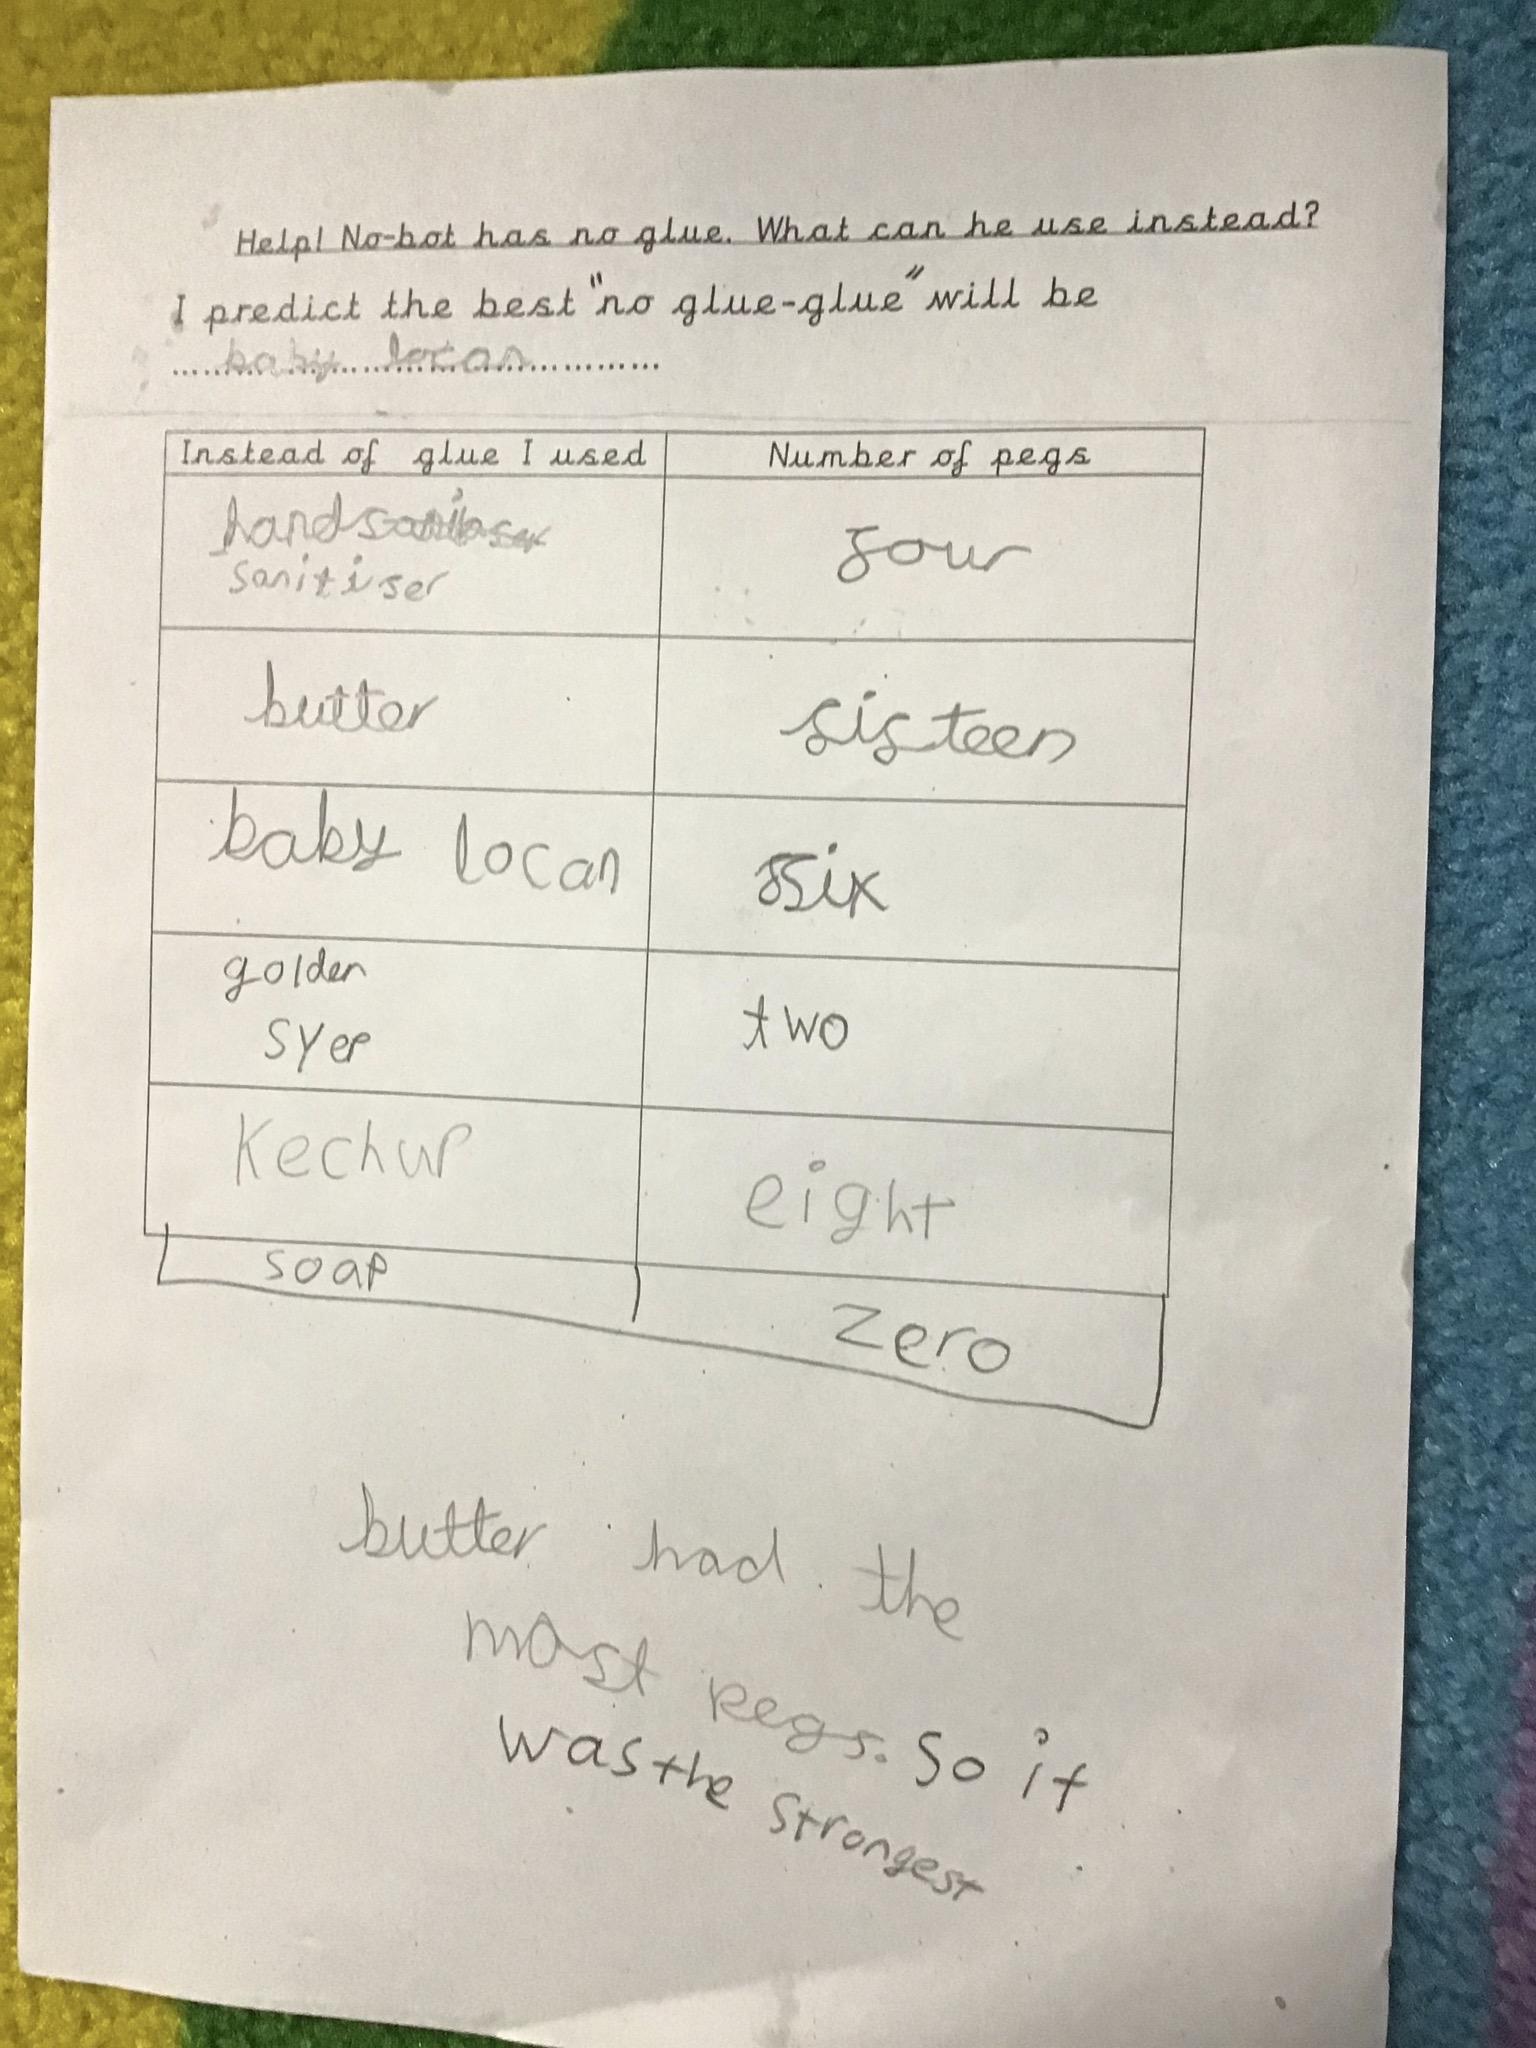 Help! No-bot has no glue. What can he use instead?
I predict the best "no glue-glue" will be
baby locan
Instead of glue I used Number of pegs
hand
sanitiser four
butter sisteen
baby locan six
golden
syep two
Kechup eight
soap zero
butter had the
most pegs. So it
was the strongest